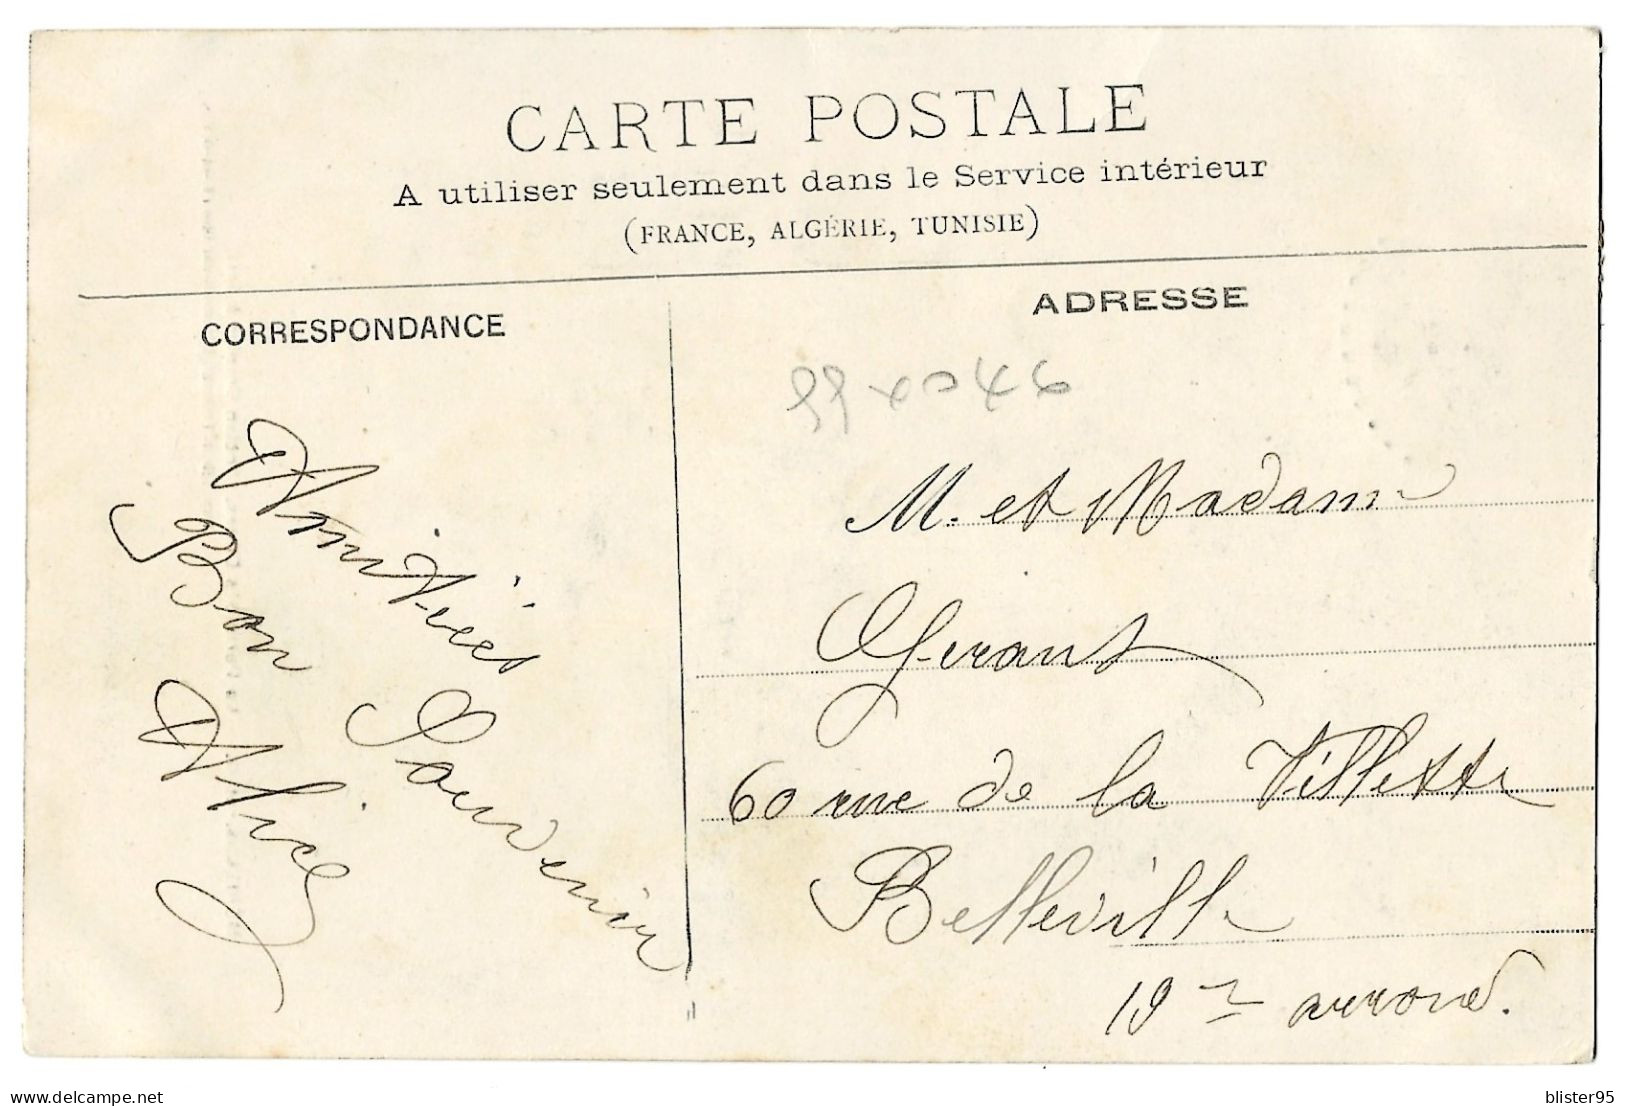 CARTE POSTALE
A utiliser seulement dans le Service intérieur
(FRANCE, ALGÉRIE, TUNISIE)
CORRESPONDANCE
Amitiées
Bon Souvenir
Alice
ADRESSE
M. et Madame
Gerant
60 rue de la Villette
Belleville
19e arrond.
delcampe.net
blister95